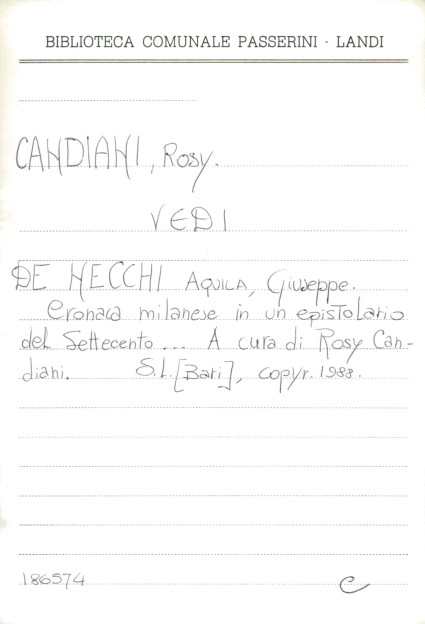 BIBLIOTECA COMUNALE PASSERINI - LANDI
CANDIANI, Rosy.
VEDI
DE NECCHI AQUILA, Giuseppe.
Cronaca milanese in un epistolario
del Settecento ... A cura di Rosy Can-
diani. S.l. [Bari], copyr. 1988.
186574 C